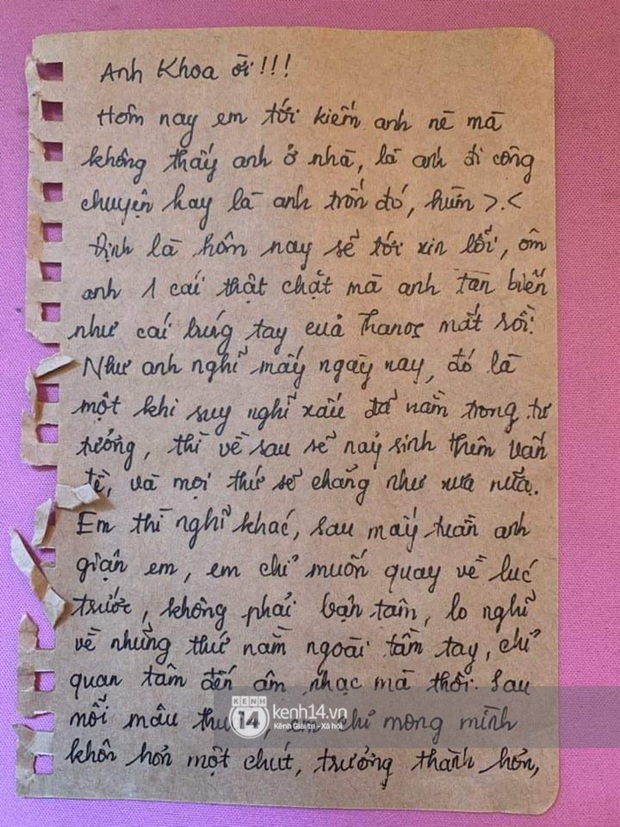 Anh Khoa ơi!!!
Hôm nay em tới kiếm anh nè mà
không thấy anh ở nhà, là anh đi công
chuyện hay là anh trốn đó, huhu >.<
Định là hôm nay sẽ tới xin lỗi, ôm
anh 1 cái thật chặt mà anh tan biến
như cái búng tay của Thanos mất rồi.
Như anh nghĩ mấy ngày nay, đó là
một khi suy nghĩ xấu đã nằm trong tư
tưởng, thì về sau sẽ nảy sinh thêm vấn
đề, và mọi thứ sẽ chẳng như xưa nữa.
Em thì nghĩ khác, sau mấy tuần anh
giận em, em chỉ muốn quay về lúc
trước, không phải bận tâm, lo nghĩ
về những thứ nằm ngoài tầm tay, chỉ
quan tâm đến âm nhạc mà thôi. Sau
mỗi mâu chỉ mong mình
khôn hơn một chút, trưởng thành hơn,
KÊNH 14
kenh14.vn
Kênh Giải trí - Xã hội